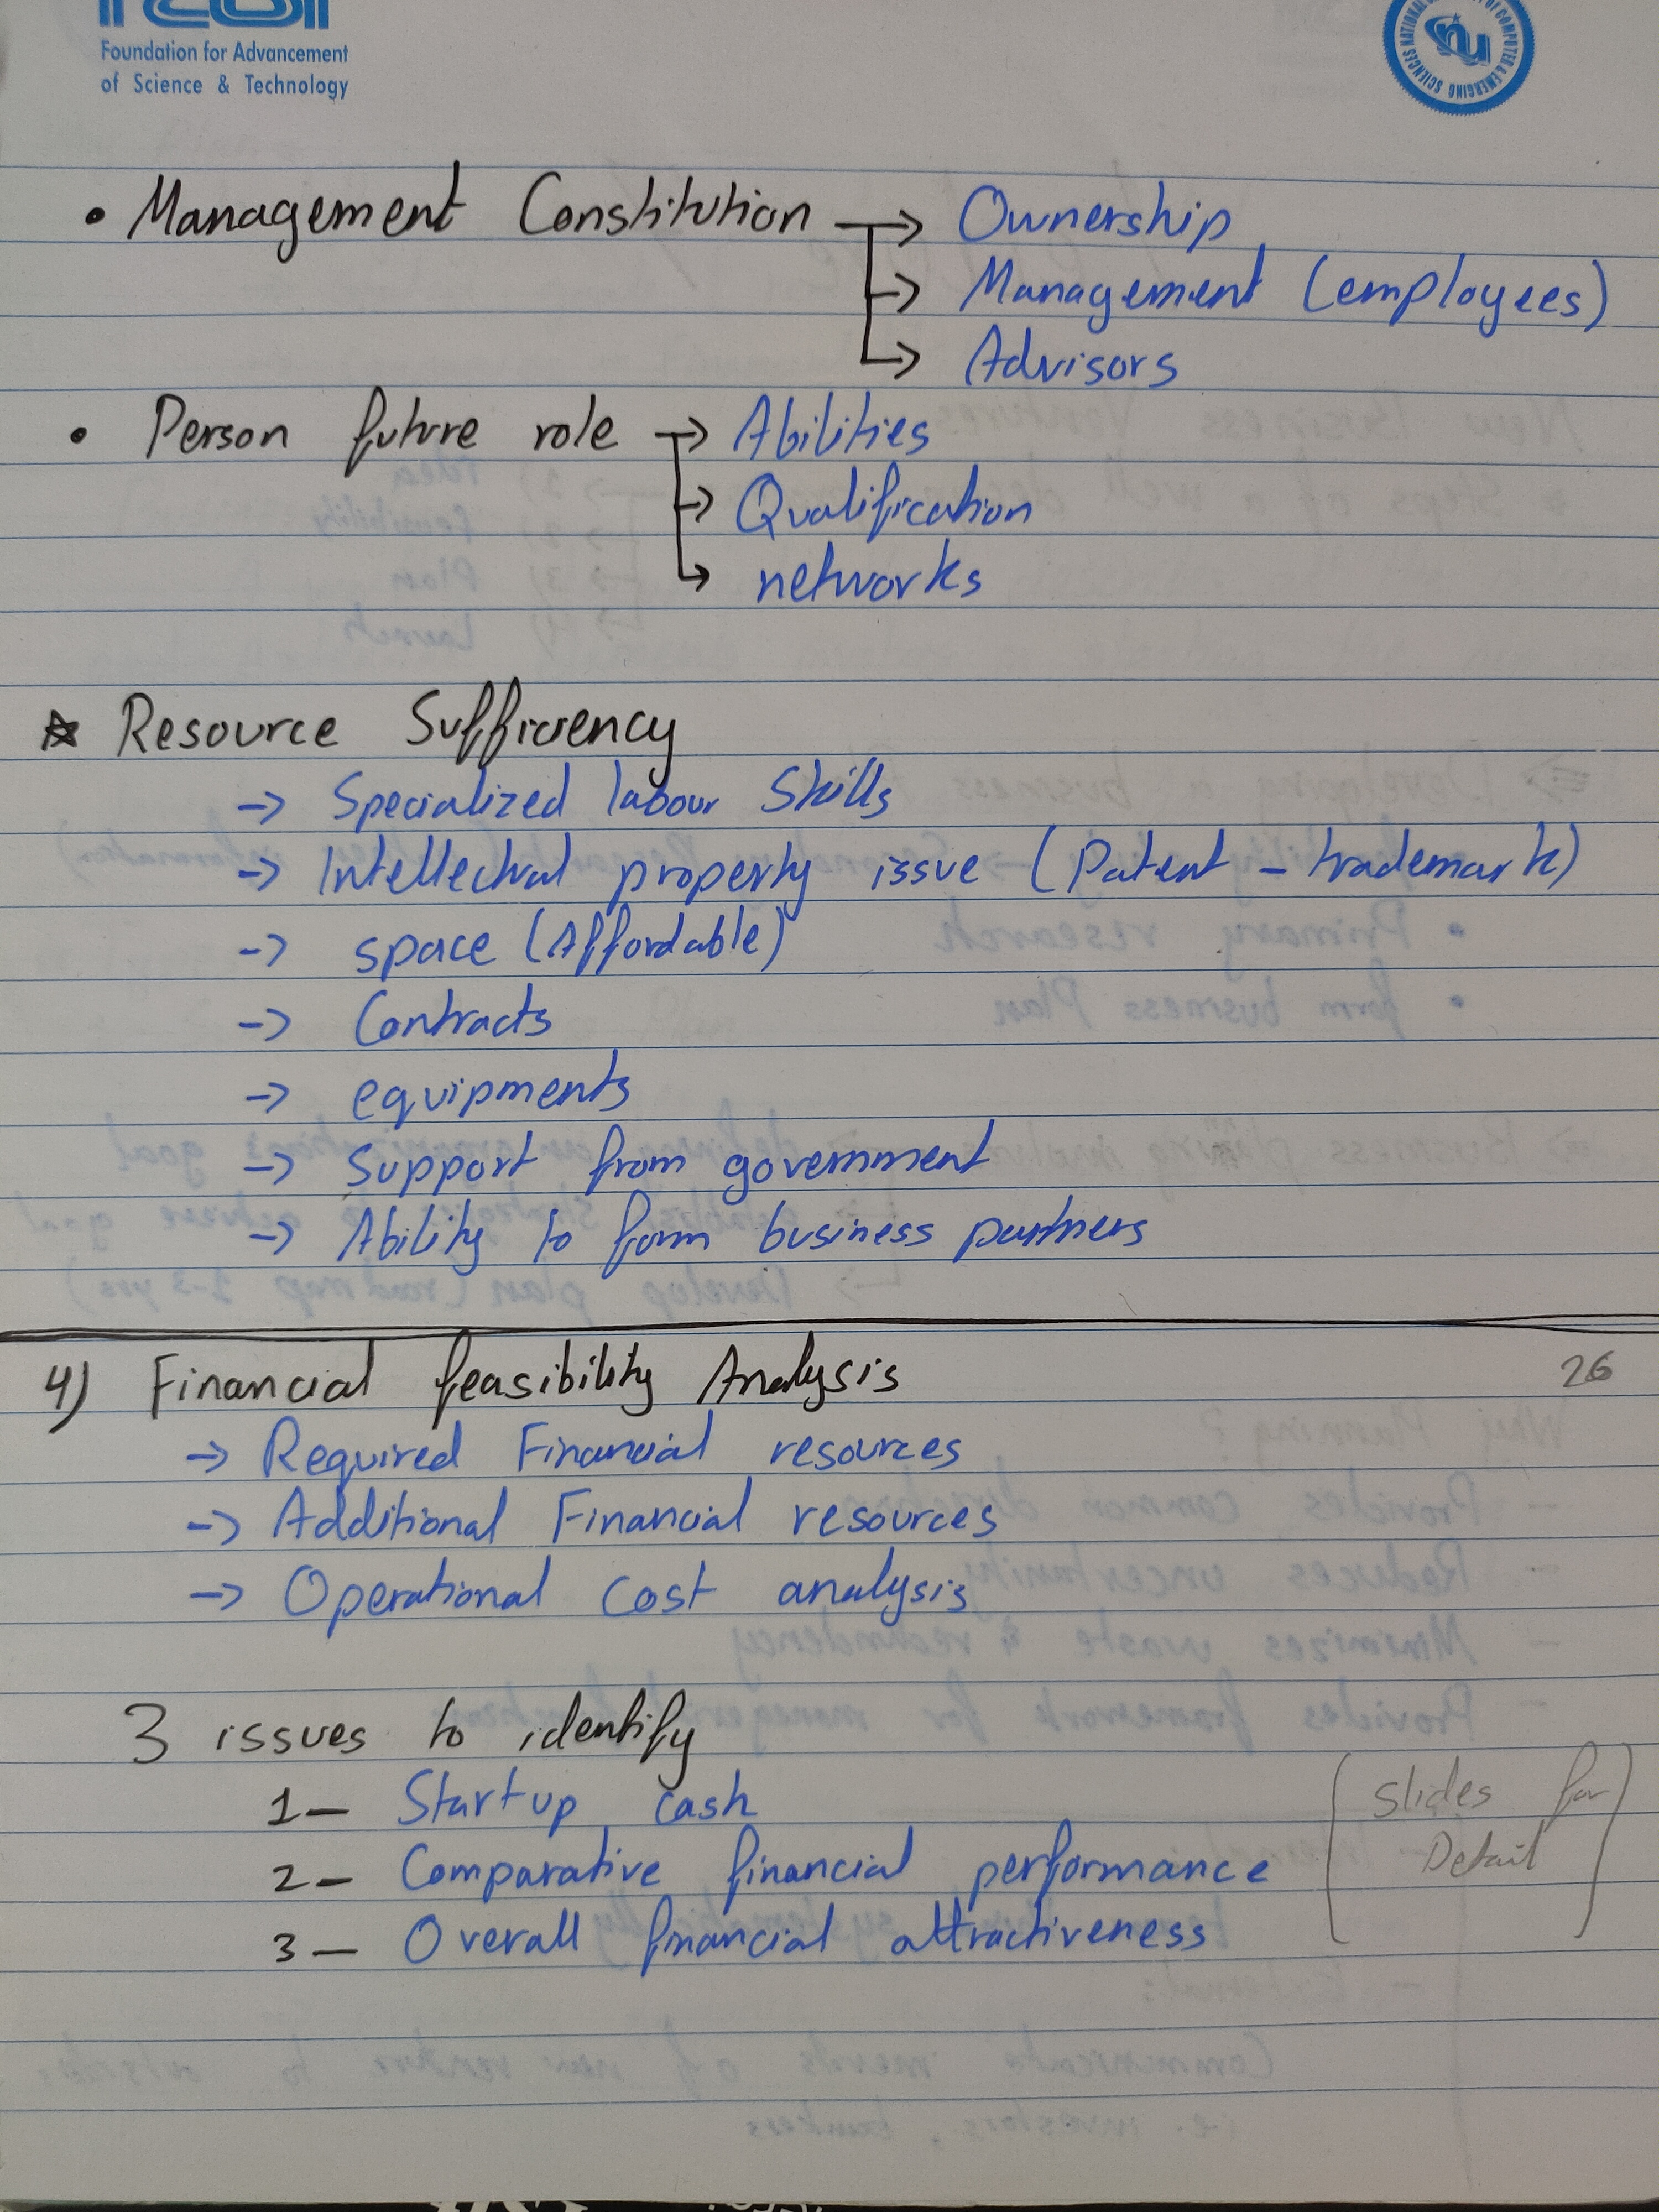 Foundation for Advancement
of Science & Technology
NATIONAL OF COMPUTER & EMERGING SCIENCES
nu
• Management Constitution → Ownership
→ Management (employees)
→ Advisors
• Person future role → Abilities
→ Qualification
→ networks
☆ Resource Sufficiency
→ Specialized labour Skills
→ Intellectual property issue (Patent - trademark)
→ space (Affordable)
→ Contracts
→ equipments
→ support from government
→ Ability to form business partners
4) Financial feasibility Analysis 26
→ Required Financial resources
→ Additional Financial resources
→ Operational cost analysis
3 issues to identify
1- Startup cash
2- Comparative financial performance
3- Overall financial attractiveness
(Slides for
Detail)